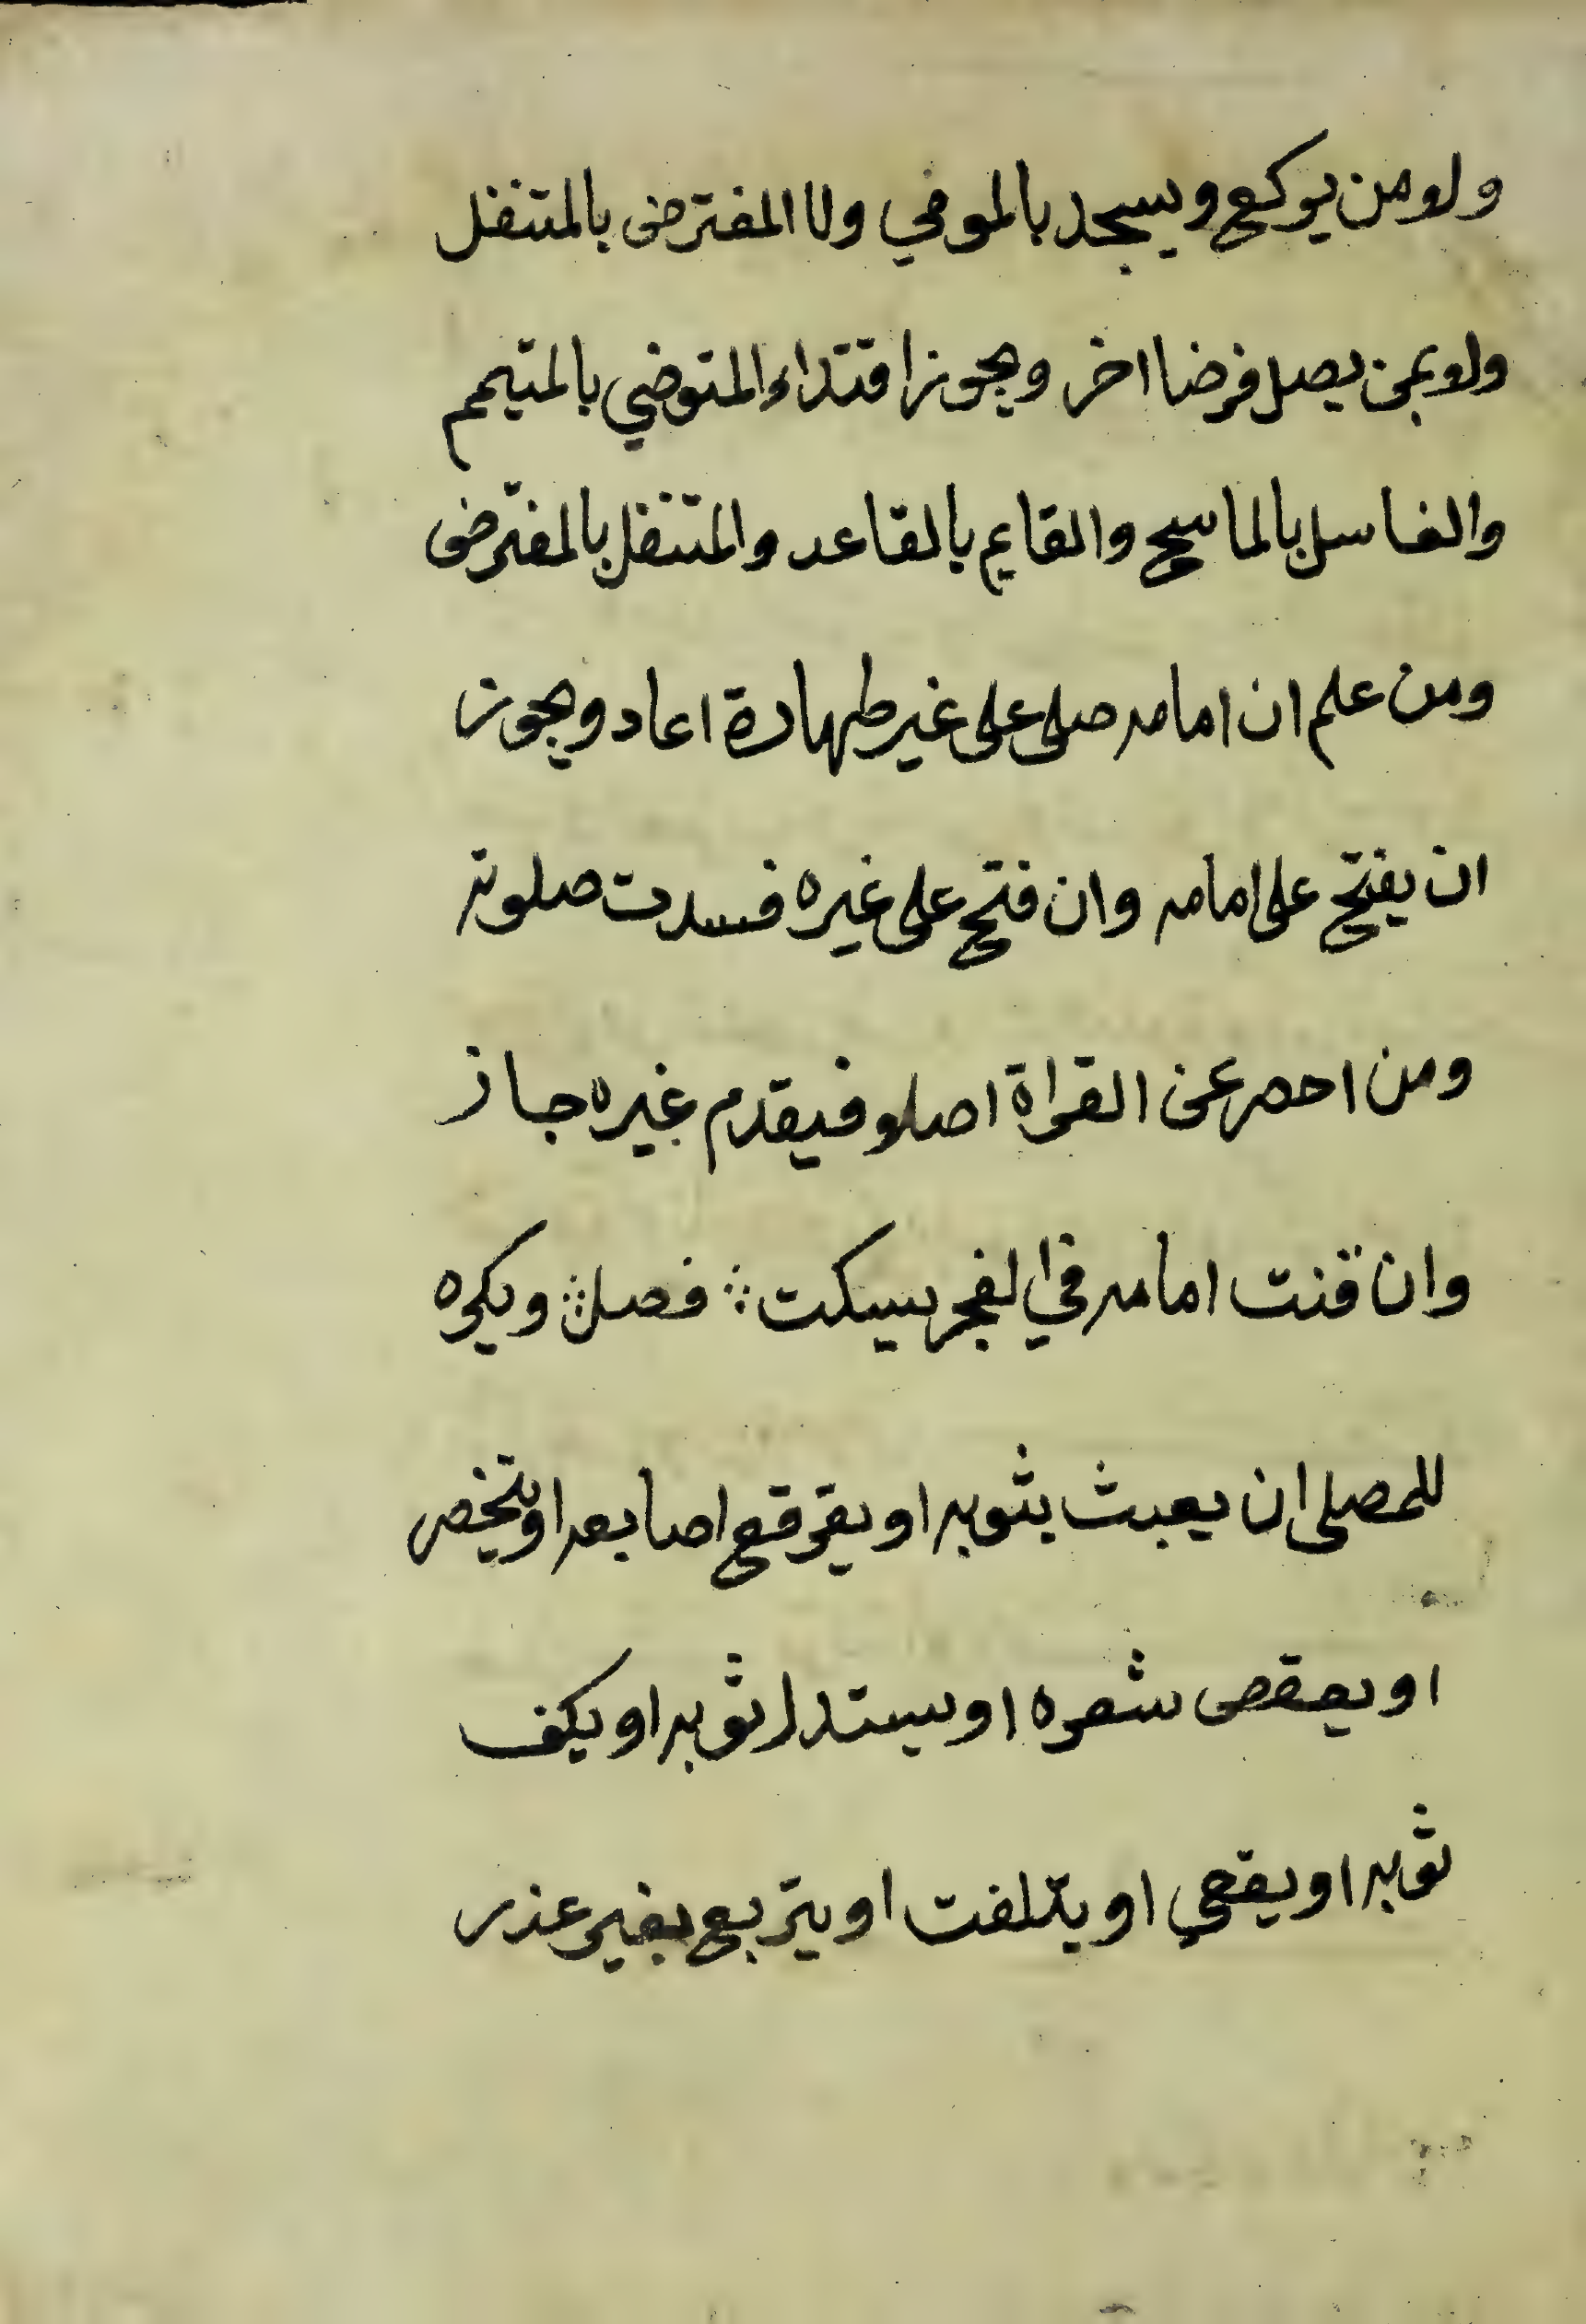 ولو من يركع ويسجد بالمومي ولا المفترض بالمتنفل
ولو بمن يصل فرضا اخر ويجوز اقتداء المتوضي بالمتيمم
والغاسل بالماسح والقايم بالقاعد والمتنفل بالمفترض
ومن علم ان امامه صلى على غير طهارة اعاد ويجوز
ان يفتح على امامه وان فتح على غيره فسدت صلوته
ومن احصر عن القراة اصلو فيقدم غيره جاز
وان قنت امامه في الفجر يسكت فصل ويكره
للمصلى ان يعبث بثوبه او يفرقع اصابعه او يتخصر
او يعقص شعره او يستدل ثوبه او يكف
ثوبه او يقعي او يتلفت او يتربع بغير عذر